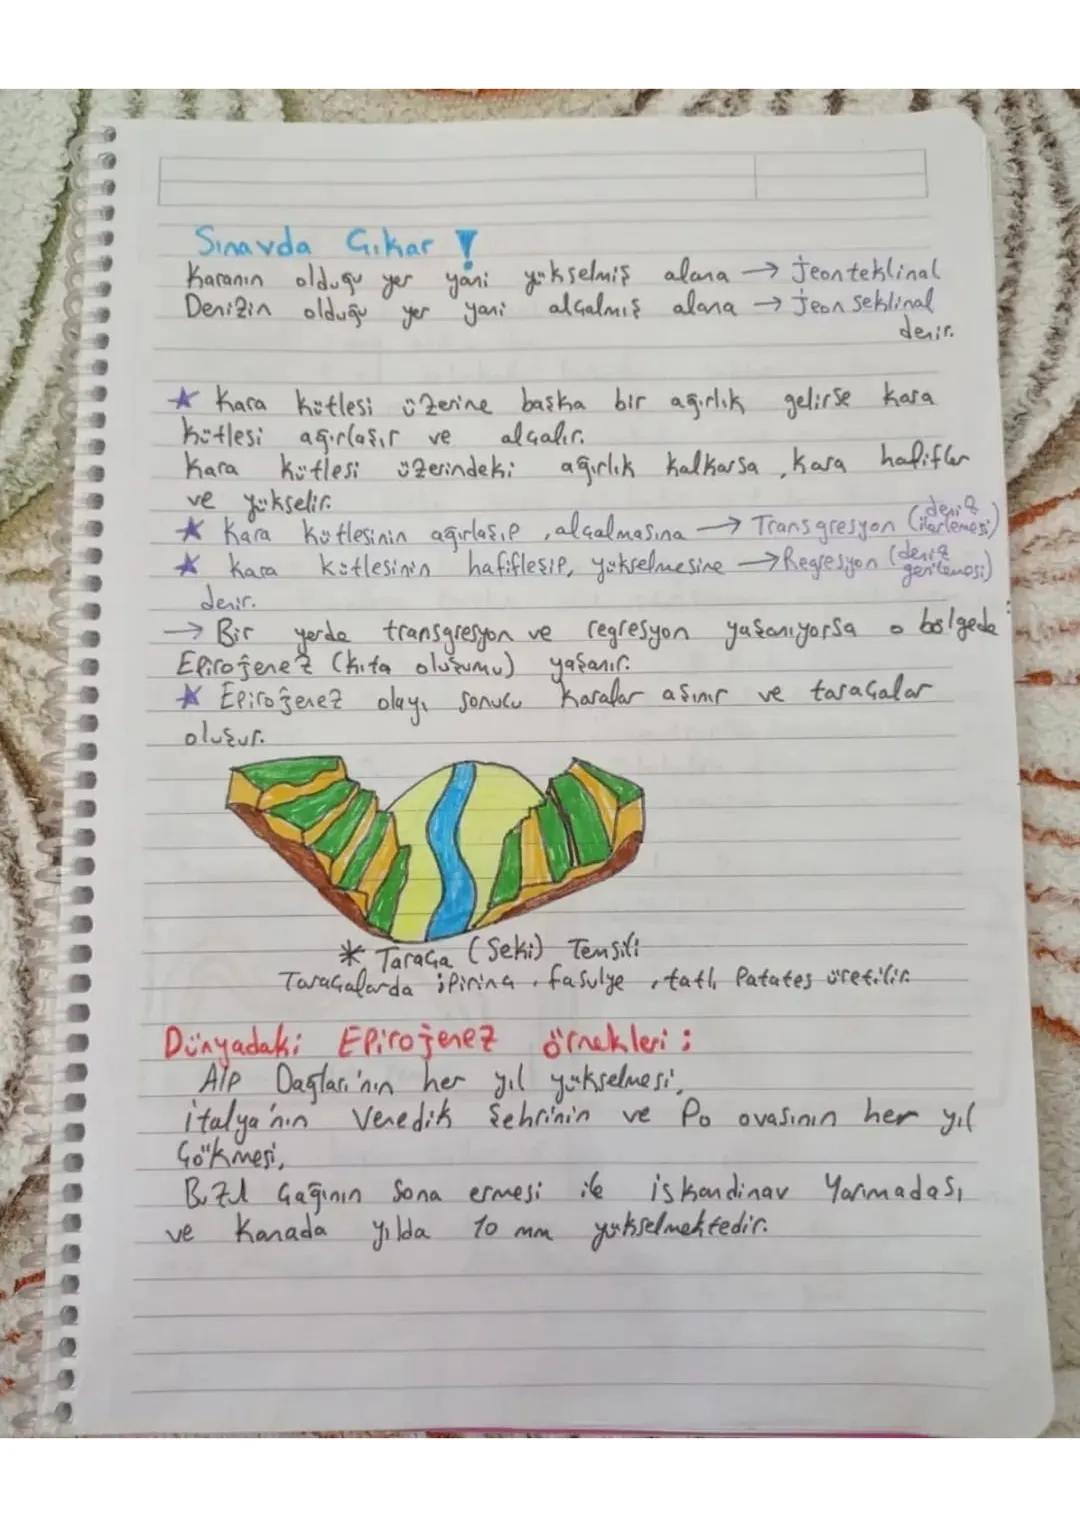 Sınavda Çıkar !
Karanın olduğu yer yani yükselmiş alana → Jeonteklinal
Denizin olduğu yer yani alçalmış alana → Jeonseklinal
denir.
★ Kara kütlesi üzerine başka bir ağırlık gelirse kara
kütlesi ağırlaşır ve alçalır.
Kara kütlesi üzerindeki ağırlık kalkarsa, kara hafifler
ve yükselir.
★ Kara kütlesinin ağırlaşıp, alçalmasına → Transgresyon (deniz ilerlemesi)
★ Kara kütlesinin hafifleşip, yükselmesine → Regresyon (deniz gerilemesi)
denir.
→ Bir yerde transgresyon ve regresyon yaşanıyorsa o bölgede
Epirojenez (kıta oluşumu) yaşanır.
★ Epirojenez olayı sonucu karalar aşınır ve taraçalar
oluşur.
* Taraça (Seki) Temsili
Taraçalarda ; pirinç, fasulye, tatlı patates üretilir.
Dünyadaki Epirojenez örnekleri :
Alp Dağları'nın her yıl yükselmesi,
İtalya'nın Venedik şehrinin ve Po ovasının her yıl
çökmesi,
Buzul Çağının sona ermesi ile İskandinav Yarımadası
ve Kanada yılda 10 mm yükselmektedir.